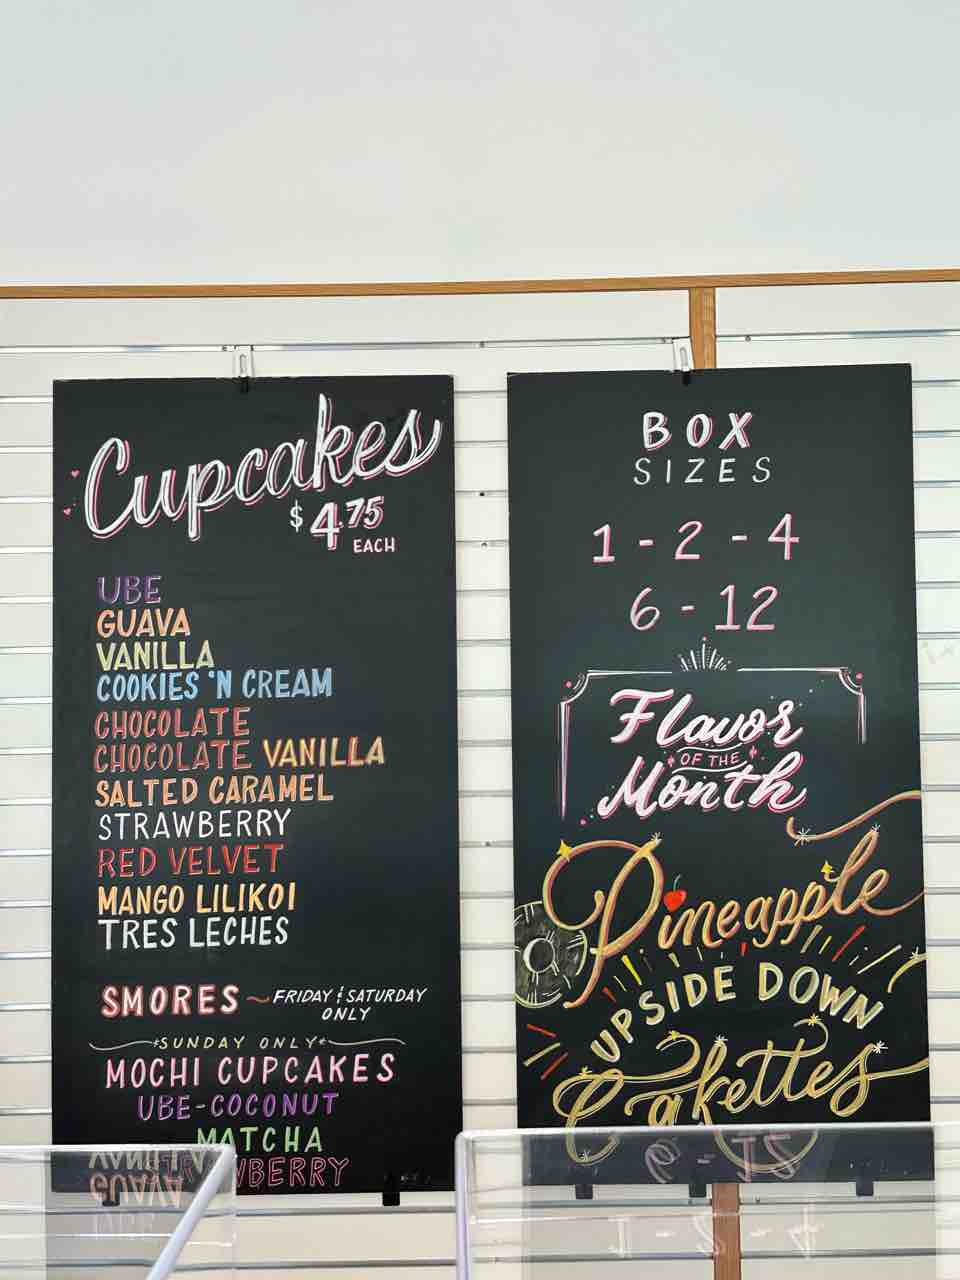 Cupcakes
$4.75
EACH
UBE
GUAVA
VANILLA
COOKIES 'N CREAM
CHOCOLATE
CHOCOLATE VANILLA
SALTED CARAMEL
STRAWBERRY
RED VELVET
MANGO LILIKOI
TRES LECHES
SMORES ~ FRIDAY & SATURDAY
ONLY
SUNDAY ONLY
MOCHI CUPCAKES
UBE-COCONUT
MATCHA
STRAWBERRY
BOX
SIZES
1 - 2 - 4
6 - 12
Flavor
OF THE
Month
Pineapple
UPSIDE DOWN
Cakettes